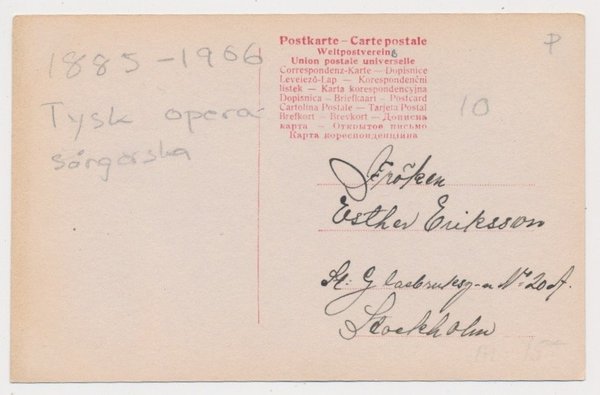 1885-1966
Tysk opera-
sångerska
P
10
Postkarte – Carte postale
Weltpostverein
Union postale universelle
Correspondenz-Karte – Dopisnice
Levelező-Lap – Korespondenční
lístek – Karta korespondencyjna
Dopisnica – Briefkaart – Postcard
Cartolina Postale – Tarjeta Postal
Brefkort – Brevkort – Дописна
карта – Открытое письмо
Карта кореспонденцiйна
Fröken
Esther Eriksson
St. Glasbruksg-n No 20A.
Stockholm